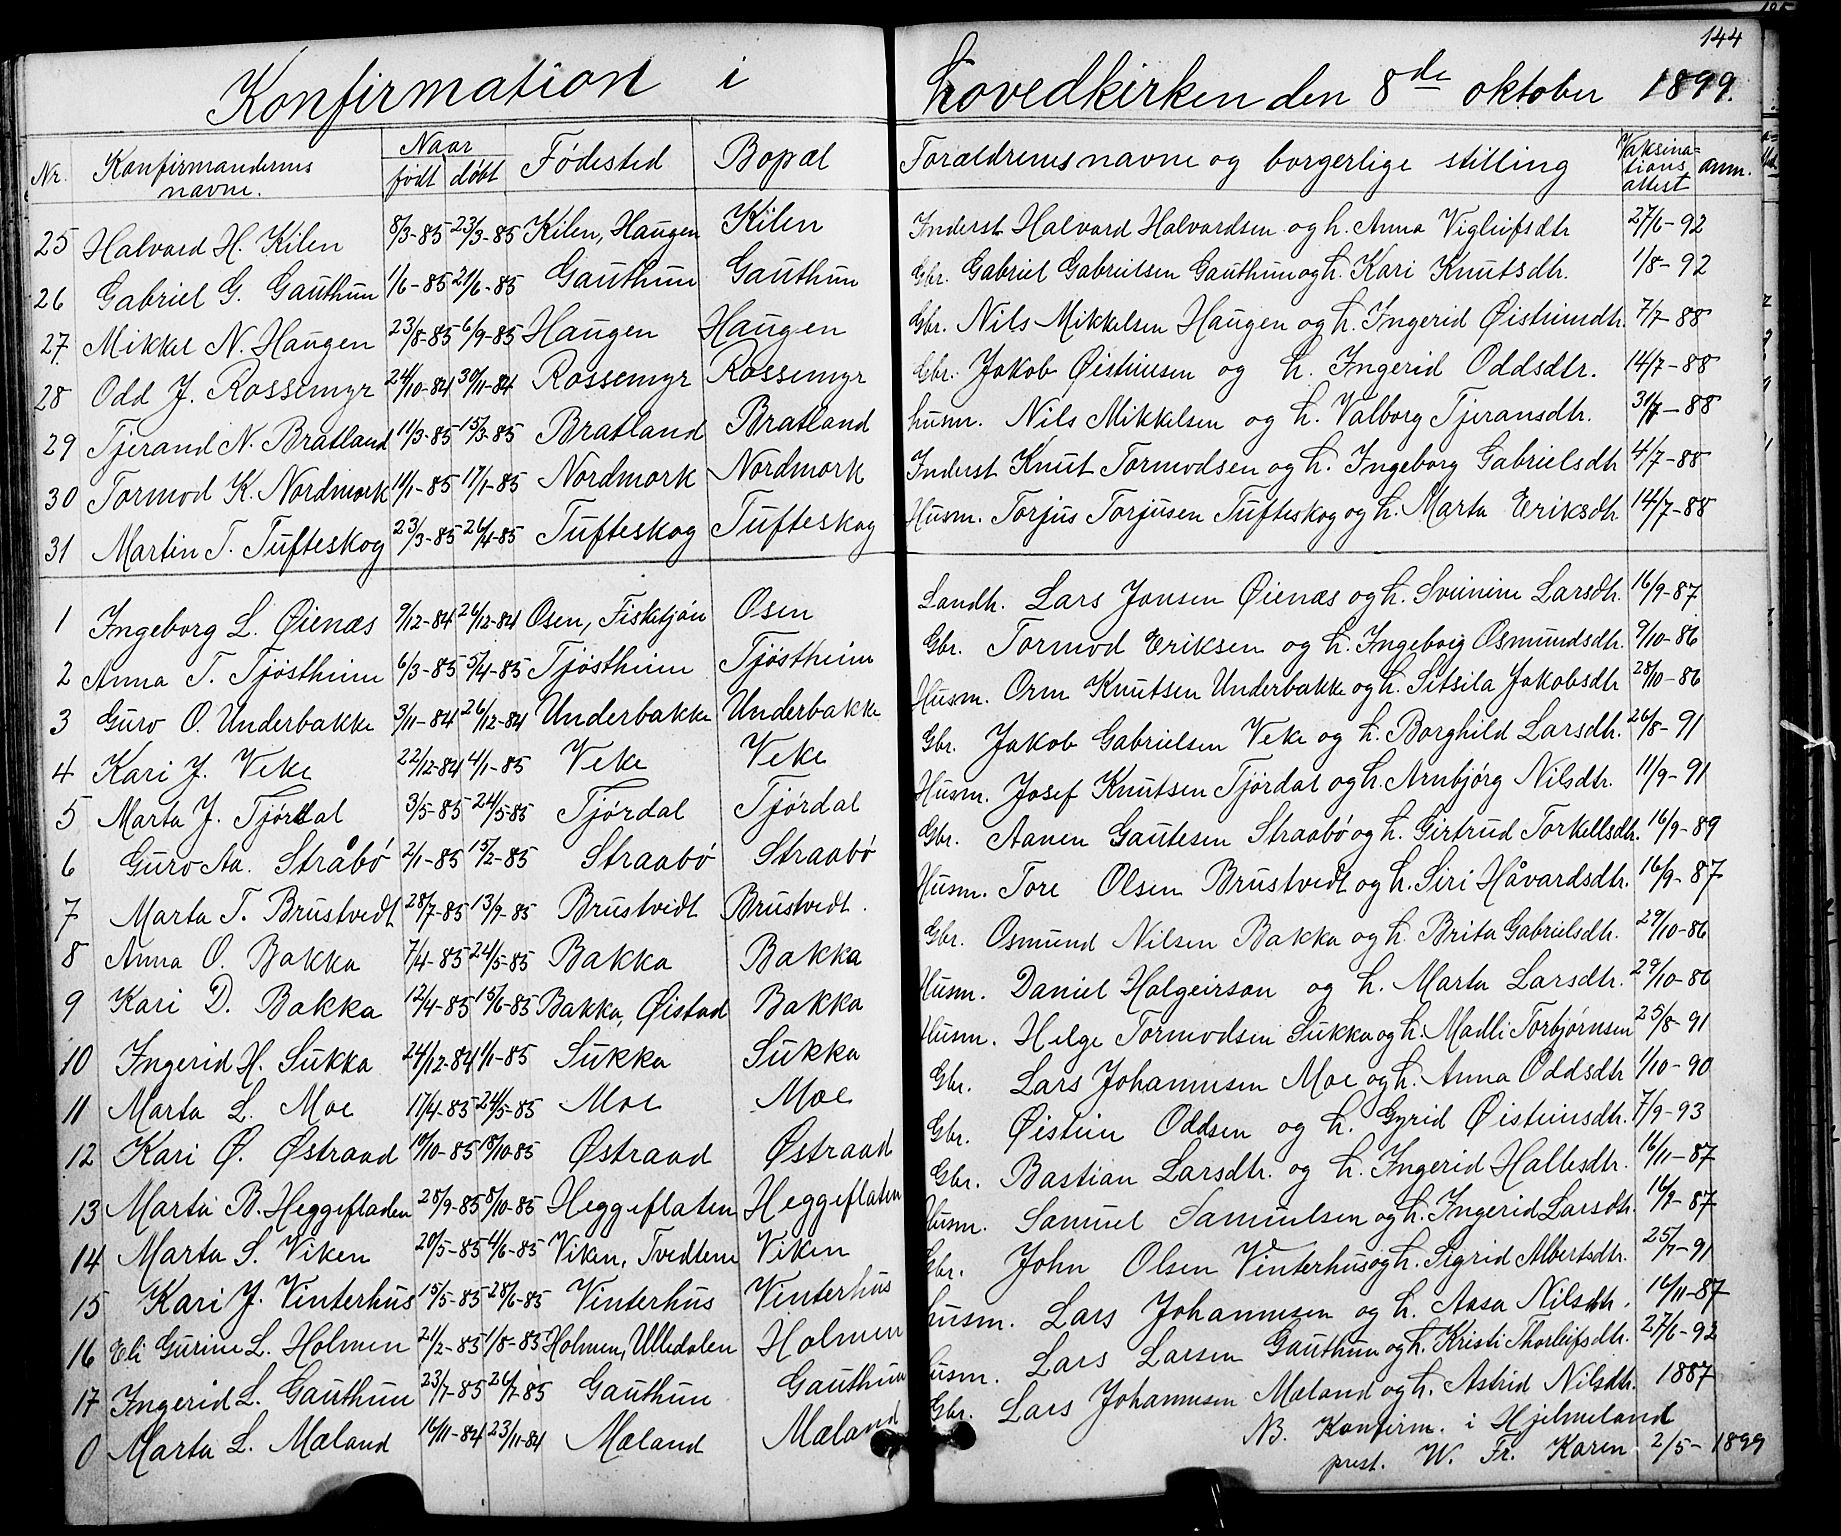 144
Konfirmation i hovedkirken den 8de oktober 1899.
Nr. Konfirmandernes navne. Naar født døbt Fødested Bopæl Forældrenes navne og borgerlige stilling Vaksinations attest anm.
25 Halvard H. Kilen 8/3-85 23/3-85 Kilen, Haugen Kilen Inderst Halvard Halvardsen og h. Anna Vigleifsdtr 27/6-92
26 Gabriel G. Gauthun 1/6-85 21/6-85 Gauthun Gauthun Gbr. Gabriel Gabrielsen Gauthun og h. Kari Knutsdtr. 1/8-92
27 Mikkel N. Haugen 23/8-85 6/9-85 Haugen Haugen Gbr. Nils Mikkelsen Haugen og h. Ingerid Øisteinsdtr. 7/7-88
28 Odd J. Rossemyr 24/10-84 30/11-84 Rossemyr Rossemyr Gbr. Jakob Øisteinsen og h. Ingerid Oddsdtr. 14/7-88
29 Tjerand N. Bratland 11/3-85 15/3-85 Bratland Bratland husm. Nils Mikkelsen og h. Valborg Tjeransdtr. 31/7-88
30 Tormod K. Nordmork 11/1-85 17/1-85 Nordmork Nordmork Inderst Knut Tormodsen og h. Ingeborg Gabrielsdtr 4/7-88
31 Martin T. Tufteskog 23/3-85 26/4-85 Tufteskog Tufteskog Husm. Torjus Torjusen Tufteskog og h. Marta Eriksdtr 14/7-88
1 Ingeborg L. Øienæs 9/12-84 26/12-84 Osen, Fisketjøn Osen Landh. Lars Jonsen Øienæs og h. Sveinine Larsdtr. 16/9-87
2 Anna T. Tjøstheim 6/3-85 5/4-85 Tjøstheim Tjøstheim Gbr. Tormod Eriksen og h. Ingeborg Osmundsdtr. 9/10-86
3 Guro O. Underbakke 3/11-84 26/12-84 Underbakke Underbakke Husm. Orm Knutsen Underbakke og h. Sitsila Jakobsdtr 28/10-86
4 Kari J. Veke 22/12-84 4/1-85 Veke Veke Gbr. Jakob Gabrielsen Veke og h. Borghild Larsdtr. 26/8-91
5 Marta J. Tjørdal 3/5-85 24/5-85 Tjørdal Tjørdal Husm. Josef Knutsen Tjørdal og h. Arnbjørg Nilsdtr. 11/9-91
6 Guro Aa. Stråbø 2/1-85 15/2-85 Straabø Straabø Gbr. Aanen Gautesen Straabø og h. Girtrud Torkellsdtr. 16/9-89
7 Marta T. Brustvedt 28/7-85 13/9-85 Brustvedt Brustvedt. Husm. Tore Olsen Brustvedt og h. Siri Håvardsdtr. 16/9-87
8 Anna O. Bakka 7/4-85 24/5-85 Bakka Bakka Gbr. Osmund Nilsen Bakka og h. Brita Gabrielsdtr. 29/10-86
9 Kari D. Bakka 12/4-85 15/6-85 Bakka, Øistad Bakka Husm. Daniel Holgeirson og h. Marta Larsdtr. 29/10-86
10 Ingerid H. Sukka 24/12-84 1/1-85 Sukka Sukka Husm. Helge Tormodsen Sukka og h. Madli Torbjørnsen 25/8-91
11 Marta L. Moe 17/4-85 24/5-85 Moe Moe Gbr. Lars Johannesen Moe og h. Anna Oddsdtr 1/10-90
12 Kari Ø. Østraad 10/10-85 18/10-85 Østraad Østraad Gbr. Øistein Oddsen og h. Gyrid Øisteinsdtr. 7/9-93
13 Marta B. Heggefladen 28/9-85 8/10-85 Heggeflaten Heggeflaten Gbr. Bastian Larsdtr. og h. Ingerid Hallesdtr. 16/11-87
14 Marta S. Viken 20/5-85 4/6-85 Viken, Tvedtene Viken Husm. Samuel Samuelsen og h. Ingerid Larsdtr. 16/9-87
15 Kari J. Vinterhus 15/5-85 28/6-85 Vinterhus Vinterhus Gbr. John Olsen Vinterhus og h. Sigrid Albertsdtr. 25/7-91
16 Eli Gurine L. Holmen 21/2-85 1/8-85 Holmen, Ulledalen Holmen husm. Lars Johannesen og h. Aasa Nilsdtr. 16/11-87
17 Ingerid L. Gauthun 23/7-85 26/7-85 Gauthun Gauthun husm. Lars Larsen Gauthun og h. Kristi Thorleifsdtr. 27/6-92
0 Marta L. Mæland 16/11-84 23/11-84 Mæland Mæland Gbr. Lars Johannesen Mæland og h. Astrid Nilsdtr. 1887
NB. Konfirm. i Hjelmeland
prest. W. Fr. Koren 2/5-1899